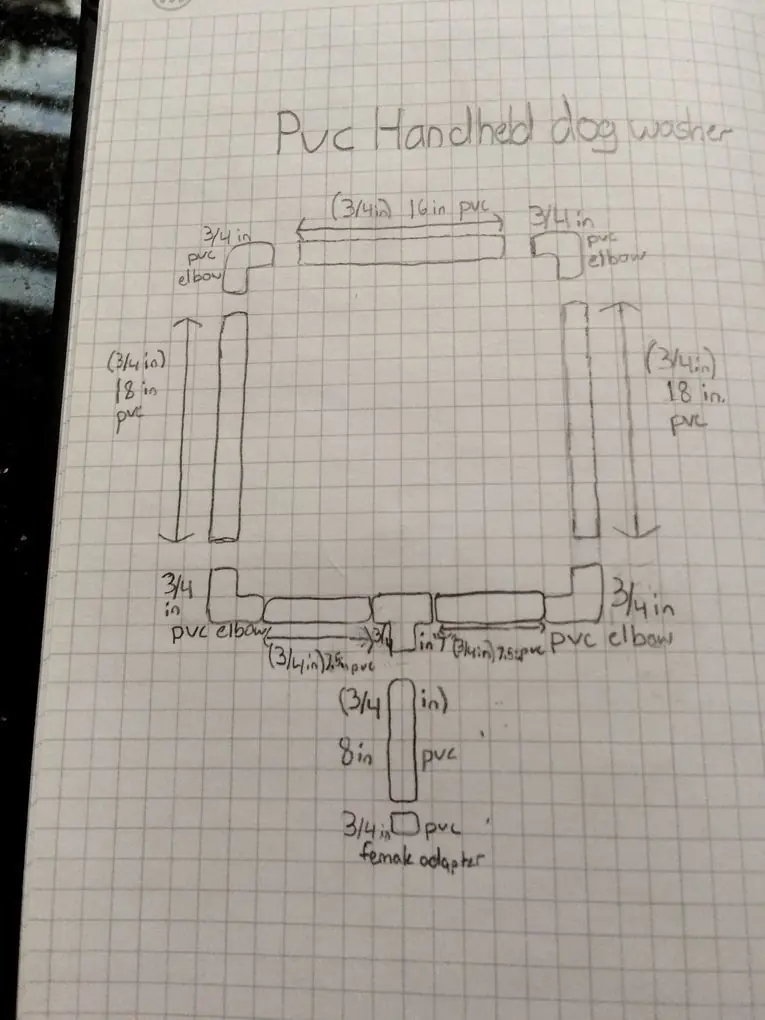 Pvc Handheld dog washer
(3/4 in) 16 in pvc
3/4 in
pvc
elbow
3/4 in
pvc
elbow
(3/4 in)
18 in
pvc
(3/4 in)
18 in.
pvc
3/4
in
pvc elbow
(3/4 in) 7.5 in pvc
3/4 in "T"
(3/4 in) 7.5 in pvc
3/4 in
pvc elbow
(3/4 in)
8 in pvc
3/4 in pvc
female adapter